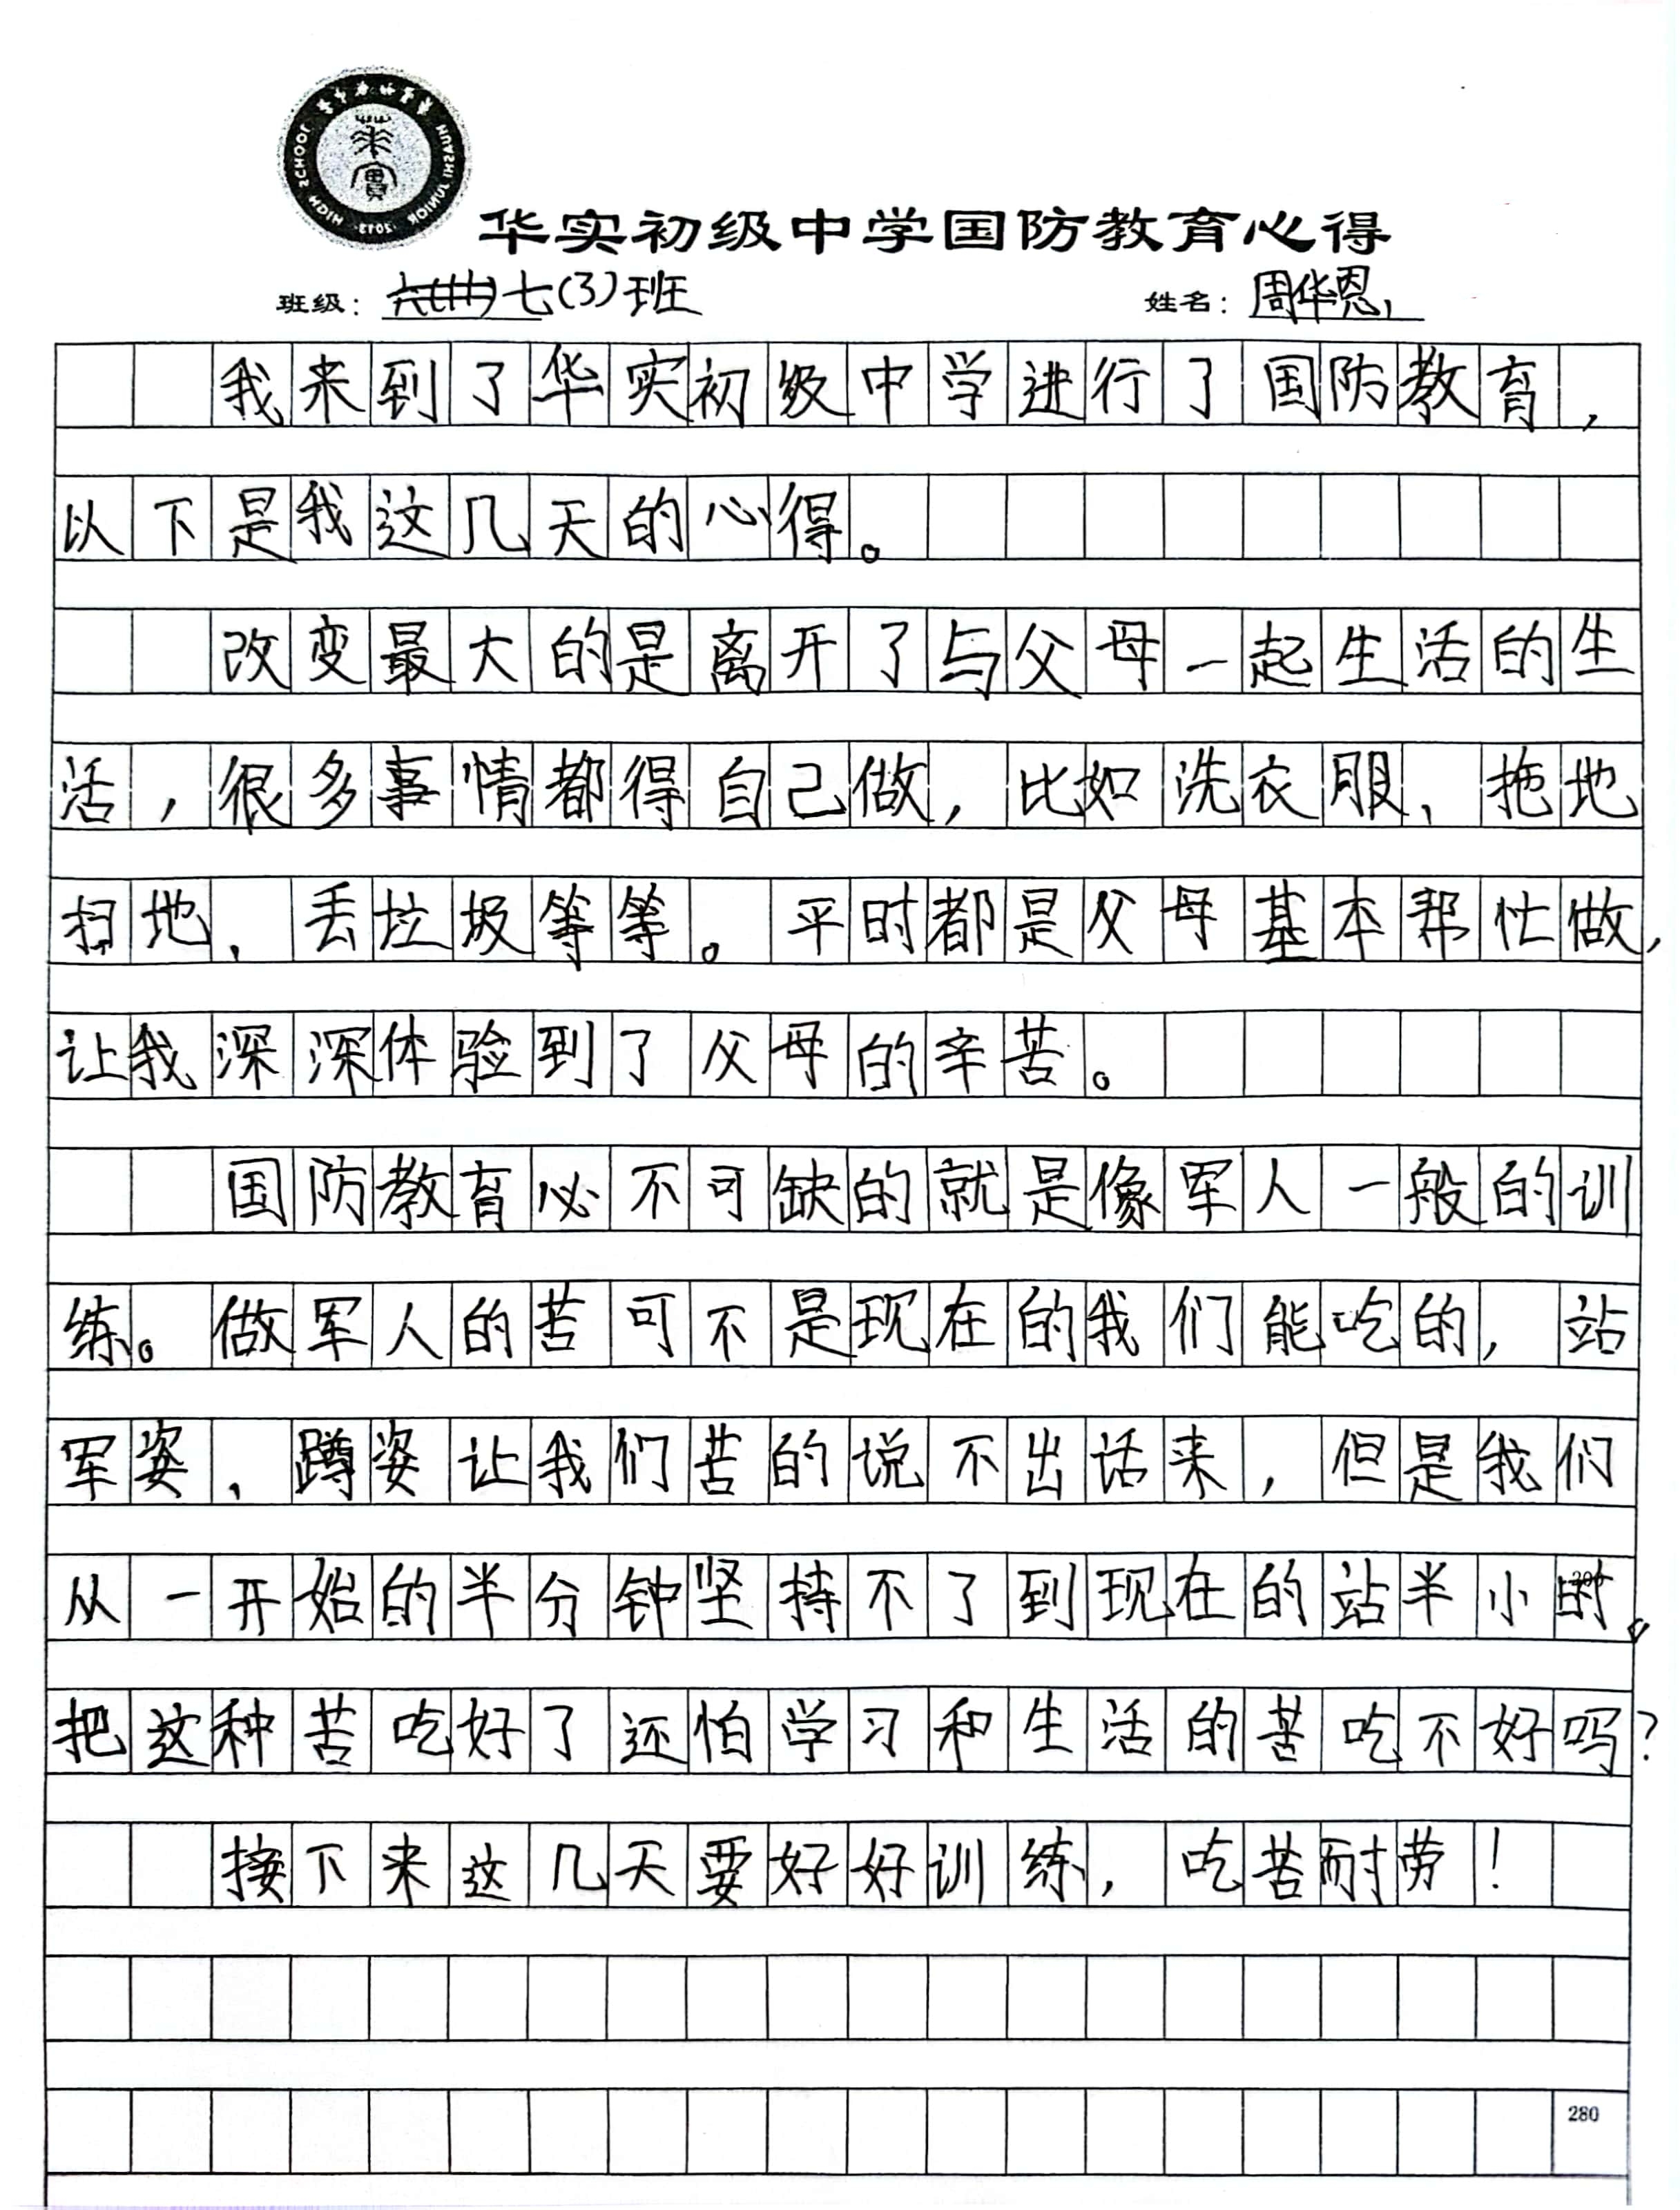 华实初级中学国防教育心得
班级：七(3)班 姓名：周华恩
我来到了华实初级中学进行了国防教育，
以下是我这几天的心得。
改变最大的是离开了与父母一起生活的生
活，很多事情都得自己做，比如洗衣服、拖地
扫地、丢垃圾等等。平时都是父母基本帮忙做，
让我深深体验到了父母的辛苦。
国防教育必不可缺的就是像军人一般的训
练。做军人的苦可不是现在的我们能吃的，站
军姿、蹲姿让我们苦的说不出话来，但是我们
从一开始的半分钟坚持不了到现在的站半小时。
把这种苦吃好了还怕学习和生活的苦吃不好吗？
接下来这几天要好好训练，吃苦耐劳！
280